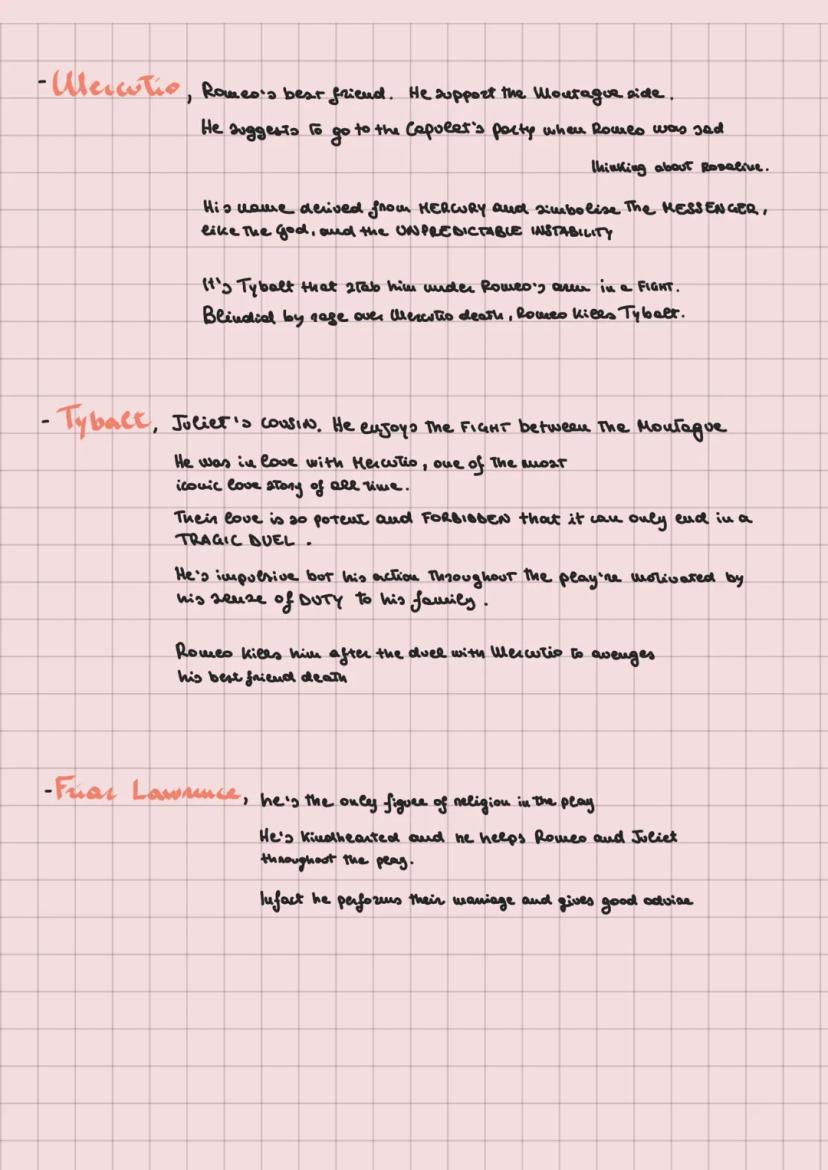 - Mercutio, Romeo's best friend. He support the Montague side.
He suggests to go to the Capulet's party when Romeo was sad
thinking about Rosaline.
His name derived from MERCURY and simbolise The MESSENGER,
like the God, and the UNPREDICTABLE INSTABILITY
It's Tybalt that stab him under Romeo's arm in a FIGHT.
Blindid by rage over Mercutio death, Romeo kills Tybalt.
- Tybalt, Juliet's cousin. He enjoys the FIGHT between The Montague
He was in love with Mercutio, one of the most
iconic love story of all time.
Their love is so potent and FORBIDDEN that it can only end in a
TRAGIC DUEL.
He's impulsive but his action Throughout the play're motivated by
his sense of DUTY to his family.
Romeo kills him after the duel with Mercutio to avenges
his best friend death
- Friar Lawrence, he's the only figure of religion in the play
He's kindhearted and he helps Romeo and Juliet
throughout the play.
Infact he performs their marriage and gives good advise